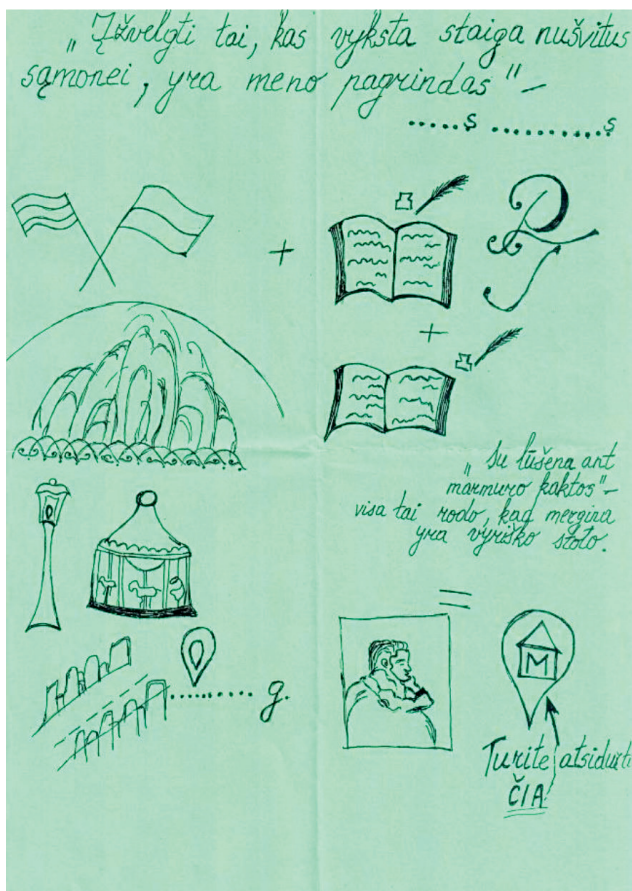 „Įžvelgti tai, kas vyksta staiga nušvitus
sąmonei, yra meno pagrindas" –
......s ............s
+
+
„Su lūšena ant
marmuro kaktos" –
visa tai rodo, kad mergina
yra vyriško stoto.
=
M
......... g.
Turite atsidurti
ČIA